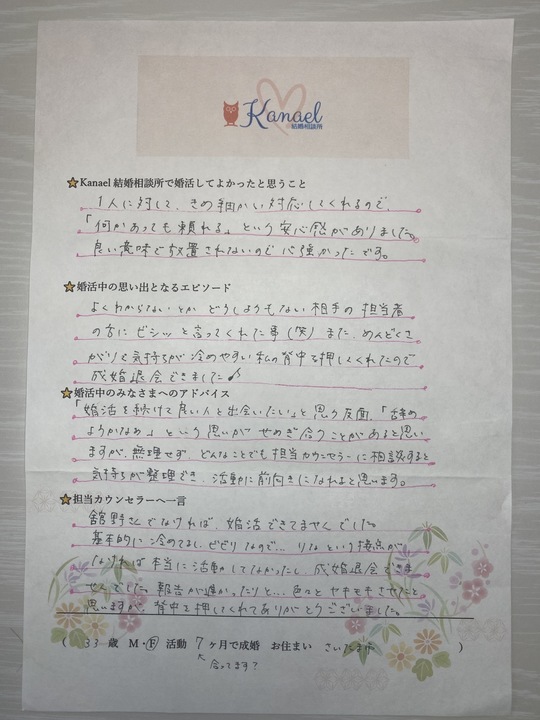 Kanael
結婚相談所
★Kanael 結婚相談所で婚活してよかったと思うこと
1人に対して、きめ細かい対応してくれるので、
「何かあっても頼れる」という安心感がありました。
良い意味で放置されないので心強かったです。
★婚活中の思い出となるエピソード
よくわからないとか どうしようもない相手の担当者
の方に ビシッと言ってくれた事(笑) また、めんどくさ
がりで気持ちが冷めやすい私の背中を押してくれたので
成婚退会できました♪
★婚活中のみなさまへのアドバイス
「婚活を続けて良い人と出会いたい」と思う反面、「辞め
ようかなぁ」という思いが せめぎ合うことがあると思い
ますが、無理せず、どんなことでも担当カウンセラーに相談すると
気持ちが整理でき、活動に前向きになれると思います。
★担当カウンセラーへ一言
舘野さんでなければ、婚活できてませんでした。
基本的に冷めてるし、ビビりなので… りな という接点が
なければ本当に活動してなかったし、成婚退会できま
せんでした。報告が遅かったりと… 色々とヤキモキさせたと
思いますが、背中を押してくれてありがとうございました。
( 33 歳 M・F 活動 7 ヶ月で成婚 お住まい さいたま市 )
合ってます?